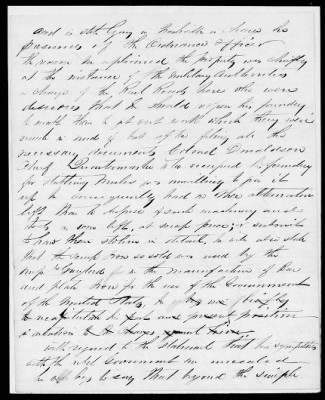 and is still lying in Nashville in charge he
presumes of the Ordnance Officer
the reason he reclaimed the property was chiefly
at the instance of the Military Authorities
in charge of the Rail Roads here who were
desirous that he should reopen his foundry
to enable them to get out work which they were
much in need of but after filing all the
necessary documents Colonel Donaldson
Chief Quartermaster who occupied the foundry
for stabling Mules was unwilling to give it
up he consequently had no other alternative
left than to dispose of such machinery and
tools as were left, at scrap prices, or submit
to have them stolen in detail, he also states
that the scrap iron so sold was used by the
in the manufacture of Bar
and plate iron for the use of the Government
of the United States,
present position
in relation to
with regard to the statement that his sympathies
with the rebel Government
he to say that beyond the simple